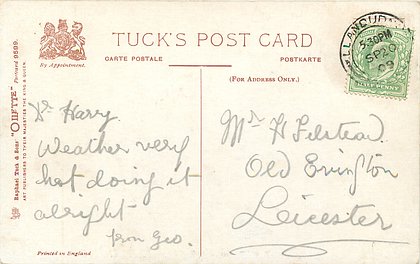 TUCK'S POST CARD
By Appointment.
CARTE POSTALE
POSTKARTE
(FOR ADDRESS ONLY.)
Raphael Tuck & Sons' "OILETTE" Postcard 9589.
ART PUBLISHERS TO THEIR MAJESTIES THE KING & QUEEN.
LLANDUDNO
5.30PM
SP 20
09
HALFPENNY
Dr Harry
Weather very
hot doing it
alright
from Geo.
Mr H Felstead
Old Evington
Leicester
Printed in England